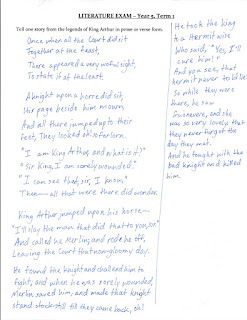 LITERATURE EXAM – Year 5, Term 1
Tell one story from the legends of King Arthur in prose or verse form.
Once when all the Court did sit
Together at the feast,
There appeared a very woful sight,
To state it at the least.
A knight upon a horse did sit,
His page beside him mourn,
And all there jumped up to their
feet, They looked so forlorn.
"I am King Arthur, and what is it?"
"Sir King, I am sorely wounded."
"I can see that, sir, I know,"
Then — all that were there did wonder.
King Arthur jumped upon his horse —
"I'll slay the man that did that to you, sir"
And called he Merlin, and rode he off,
Leaving the Court that now gloomy day.
He found the knight and challend him to
fight, and when he was sorely wounded,
Merlin saved him, and made that knight
stand stock-still till they came back, oh!
He took the king
to a Hermit wire
Who said, "Yes, I'll
cure him!"
And you see, that
hermit never told lies
So while they were
there, he saw
Guinevere, and she
was so very lovely, that
they never forgot the
day they met.
And he fought with the
bad knight and killed
him.